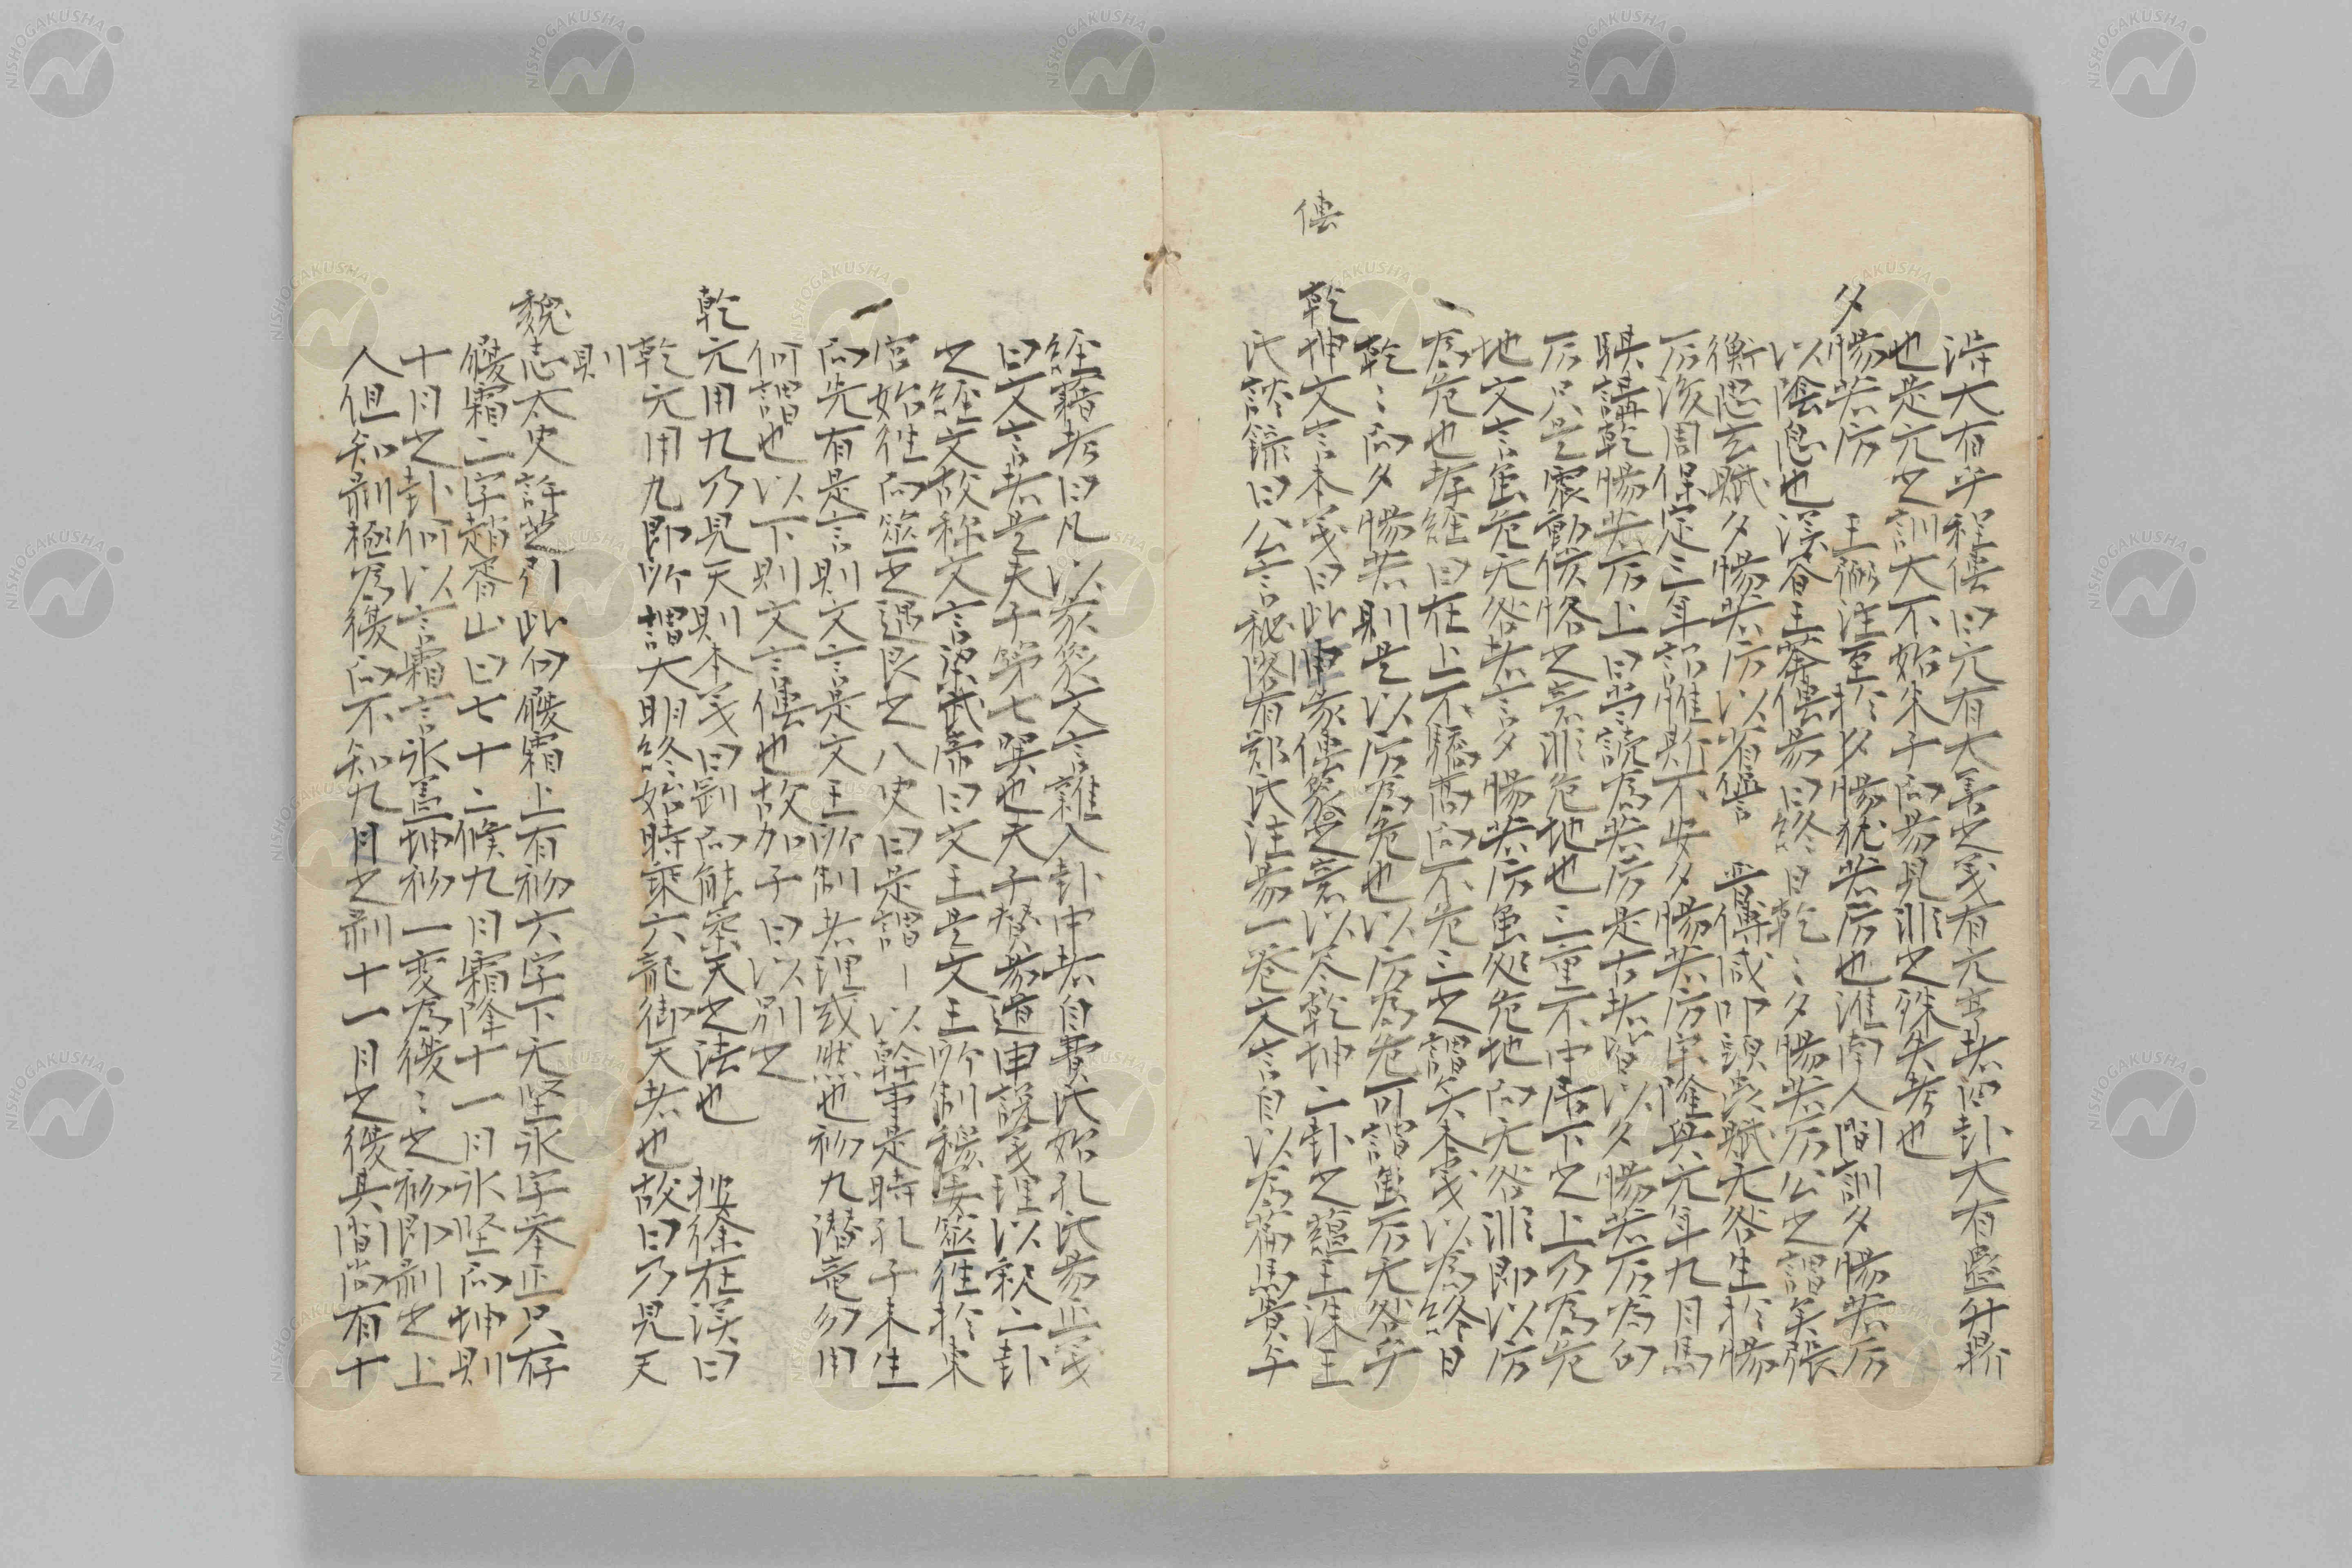 済大有乎程傳曰元有大善之義有元亨者四卦大有蠱升鼎
也是元之訓大不始朱子而易見非之殊失考也
夕惕若厉 王弼注至於夕惕猶若厉也淮南人間訓夕惕若厉
以陰息也漢書王莽傳易曰終日乾〻夕惕若厉公之謂矣張
衡思玄賦夕惕若厉以省愆 晋傅咸叩頭虫賦无咎生於惕
厉後周保定三年詔惟斯不安夕惕若厉宋隆興元年九月馬
騏講乾惕若厉上曰当読為若厉是古者皆以夕惕若厉為句
厉只是震動倏恪之意非危地也三重不中居下之上乃為危
地文言虽危无咎者言夕惕若厉虽処危地而无咎非即以厉
為危也按経曰在上不驕高而不危三之謂矣本義以為終日
乾〻而夕惕若則是以厉為危也以厉為危可謂虽厉无咎乎
傳
乾坤文言本義曰此申彖傳象之意以尽乾坤二卦之蘊王洙王
氏談録曰公言秘閣有鄭氏注易一巻文言自以為篇馬貴与
経籍考曰凡以彖象文言雑入卦中者自費氏始孔氏易正義
曰文言者是夫子第七翼也夫子賛易道申説義理以釈二卦
之経文故称文言梁武帝曰文王是文王所制穆姜筮往於東
宮始往而筮之遇艮之八史曰是謂 以幹事是時孔子未生
而先有是言則文言是文王所制者理或然也初九潜竜勿用
何謂也以下則文言傳也故加子曰以別之
乾元用九乃見天則本義曰剛而能柔天之法也 按徐在漢曰
乾元用九即所謂大明終始時乗六龍御天者也故曰乃見天
則
魏志太史許芝引此句履霜上有初六字下无堅氷字挙正只存
履霜二字趙香山曰七十二候九月霜降十一月氷堅而坤則
十月之卦何以言霜言氷蓋坤初一変為復〻之初即剥之上
人但知剥極為復而不知九月之剥十一月之復其間尚有十